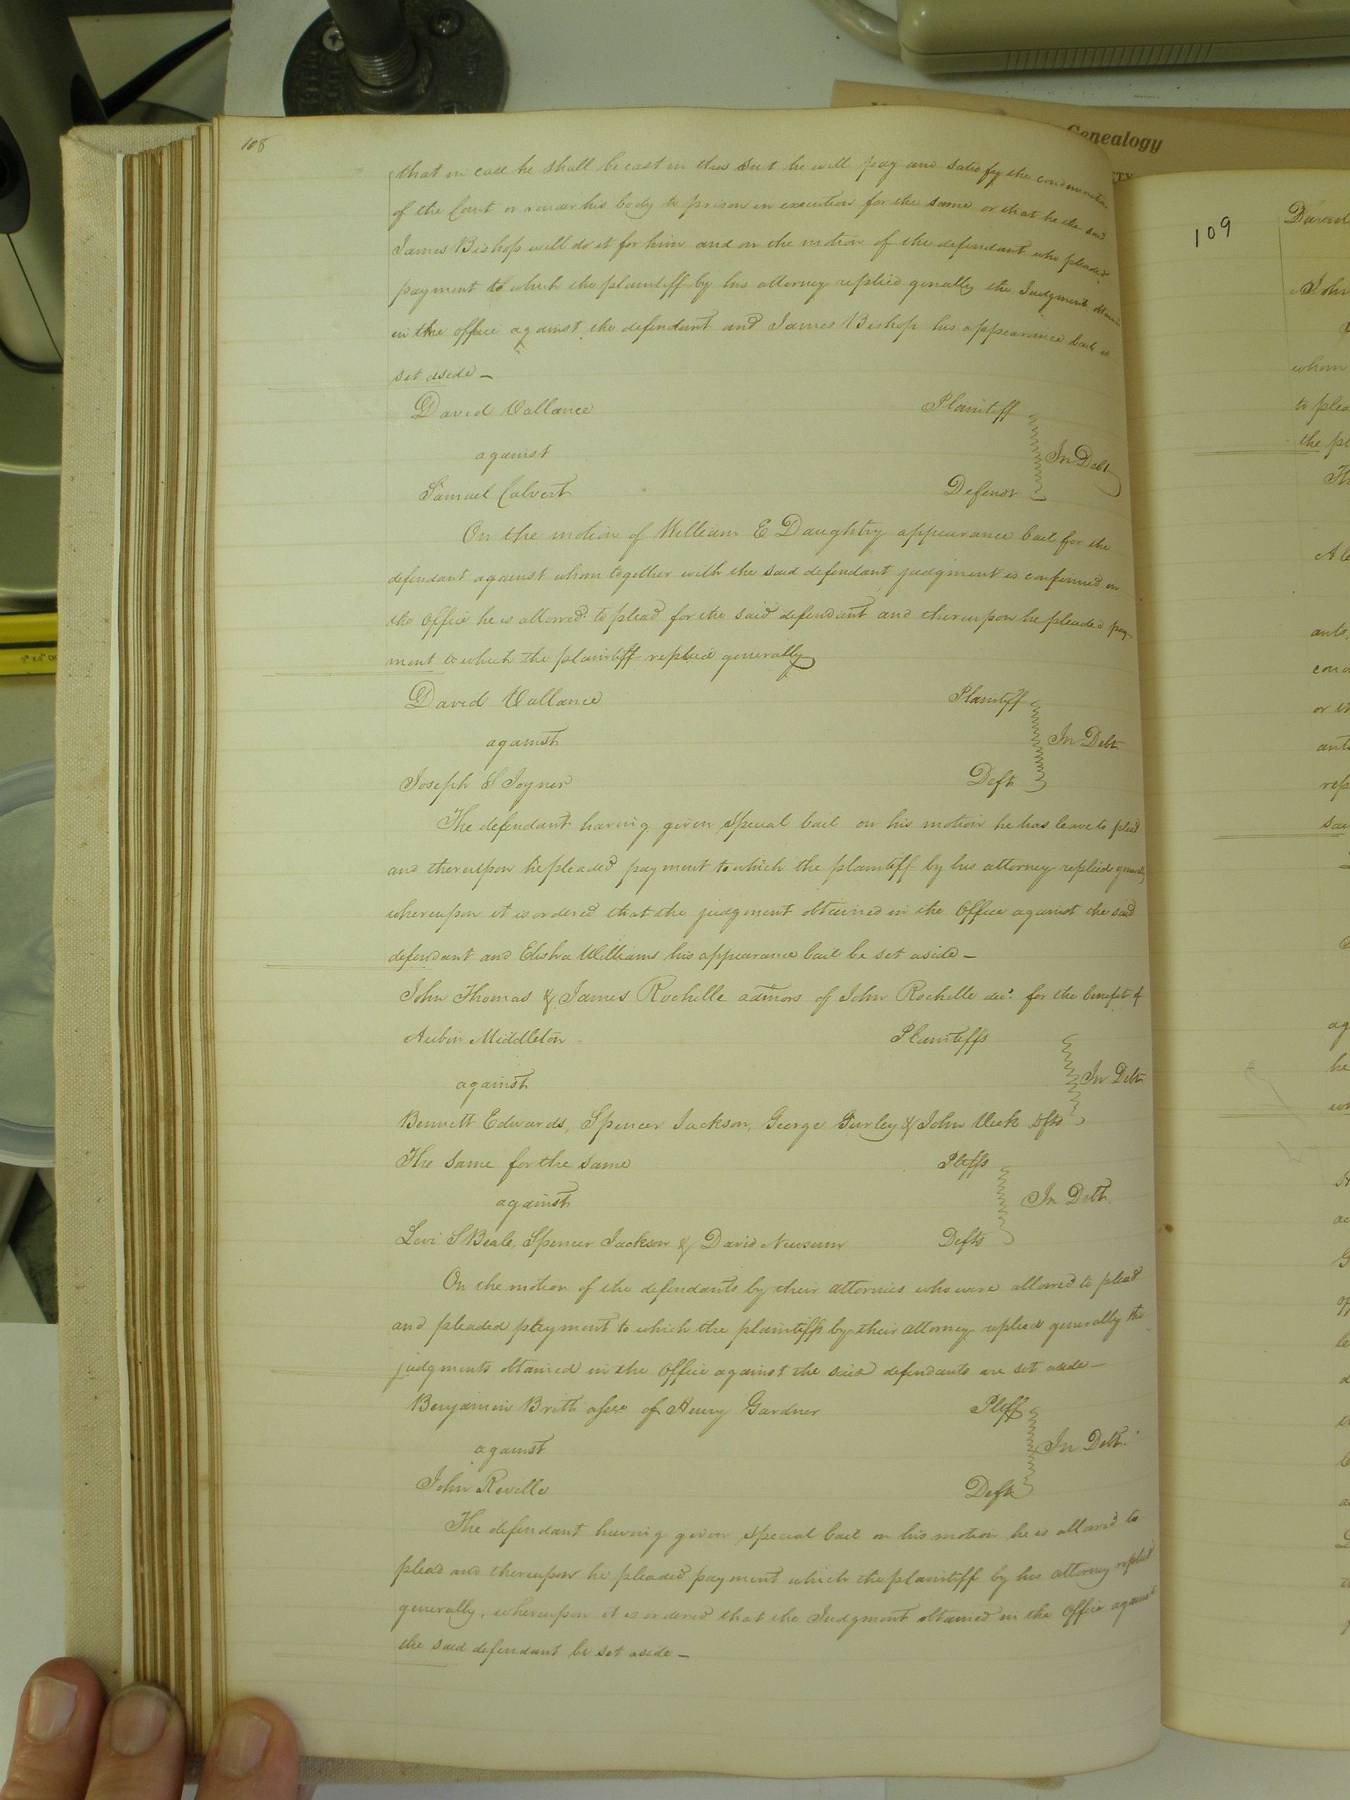 108
that in case he shall be cast in this suit he will pay and satisfy the condemnation
of the Court or render his body to prison in execution for the same or that he the said
James Bishop will do it for him and on the motion of the defendant who pleaded
payment to which the plaintiff by his attorney replied genally the Judgment obtained
in the office against the defendant and James Bishop his appearance bail is
set aside –
David Vallance Plaintiff
against In Debt
Samuel Calvert Defendt
On the motion of William E Daughtry appearance bail for the
defendant against whom together with the said defendant judgment is confirmed in
the Office he is allowed to plead for the said defendant and thereupon he pleaded pay-
ment to which the plaintiff replied generally
David Vallance Plaintiff
against In Debt
Joseph S Joyner Deft
The defendant having given special bail on his motion he has leave to plead
and thereupon he pleaded payment to which the plaintiff by his attorney replied generally
whereupon it is ordered that the judgment obtained in the Office against the said
defendant and Elisha Williams his appearance bail be set aside –
John Thomas & James Rochelle admors of John Rochelle decd. for the benefit of
Aubin Middleton Plaintiffs
against In Debt
Bennett Edwards, Spencer Jackson, George Gurley & John Meek Defts
The same for the same Pltffs
against In Debt
Levi S Beale, Spencer Jackson & David Newsum Defts
On the motion of the defendants by their attornies who were allowed to plead
and pleaded payment to which the plaintiffs by their attorney replied generally the
judgments obtained in the Office against the said defendants are set aside –
Benjamin Britt assee of Henry Gardner Pltff
against In Debt
John Reville Deft
The defendant having given special bail on his motion he is allowed to
plead and thereupon he pleaded payment which the plaintiff by his attorney replied
generally, whereupon it is ordered that the Judgment obtained in the Office against
the said defendant be set aside –
Genealogy
109
John
whom
to plea
the pl